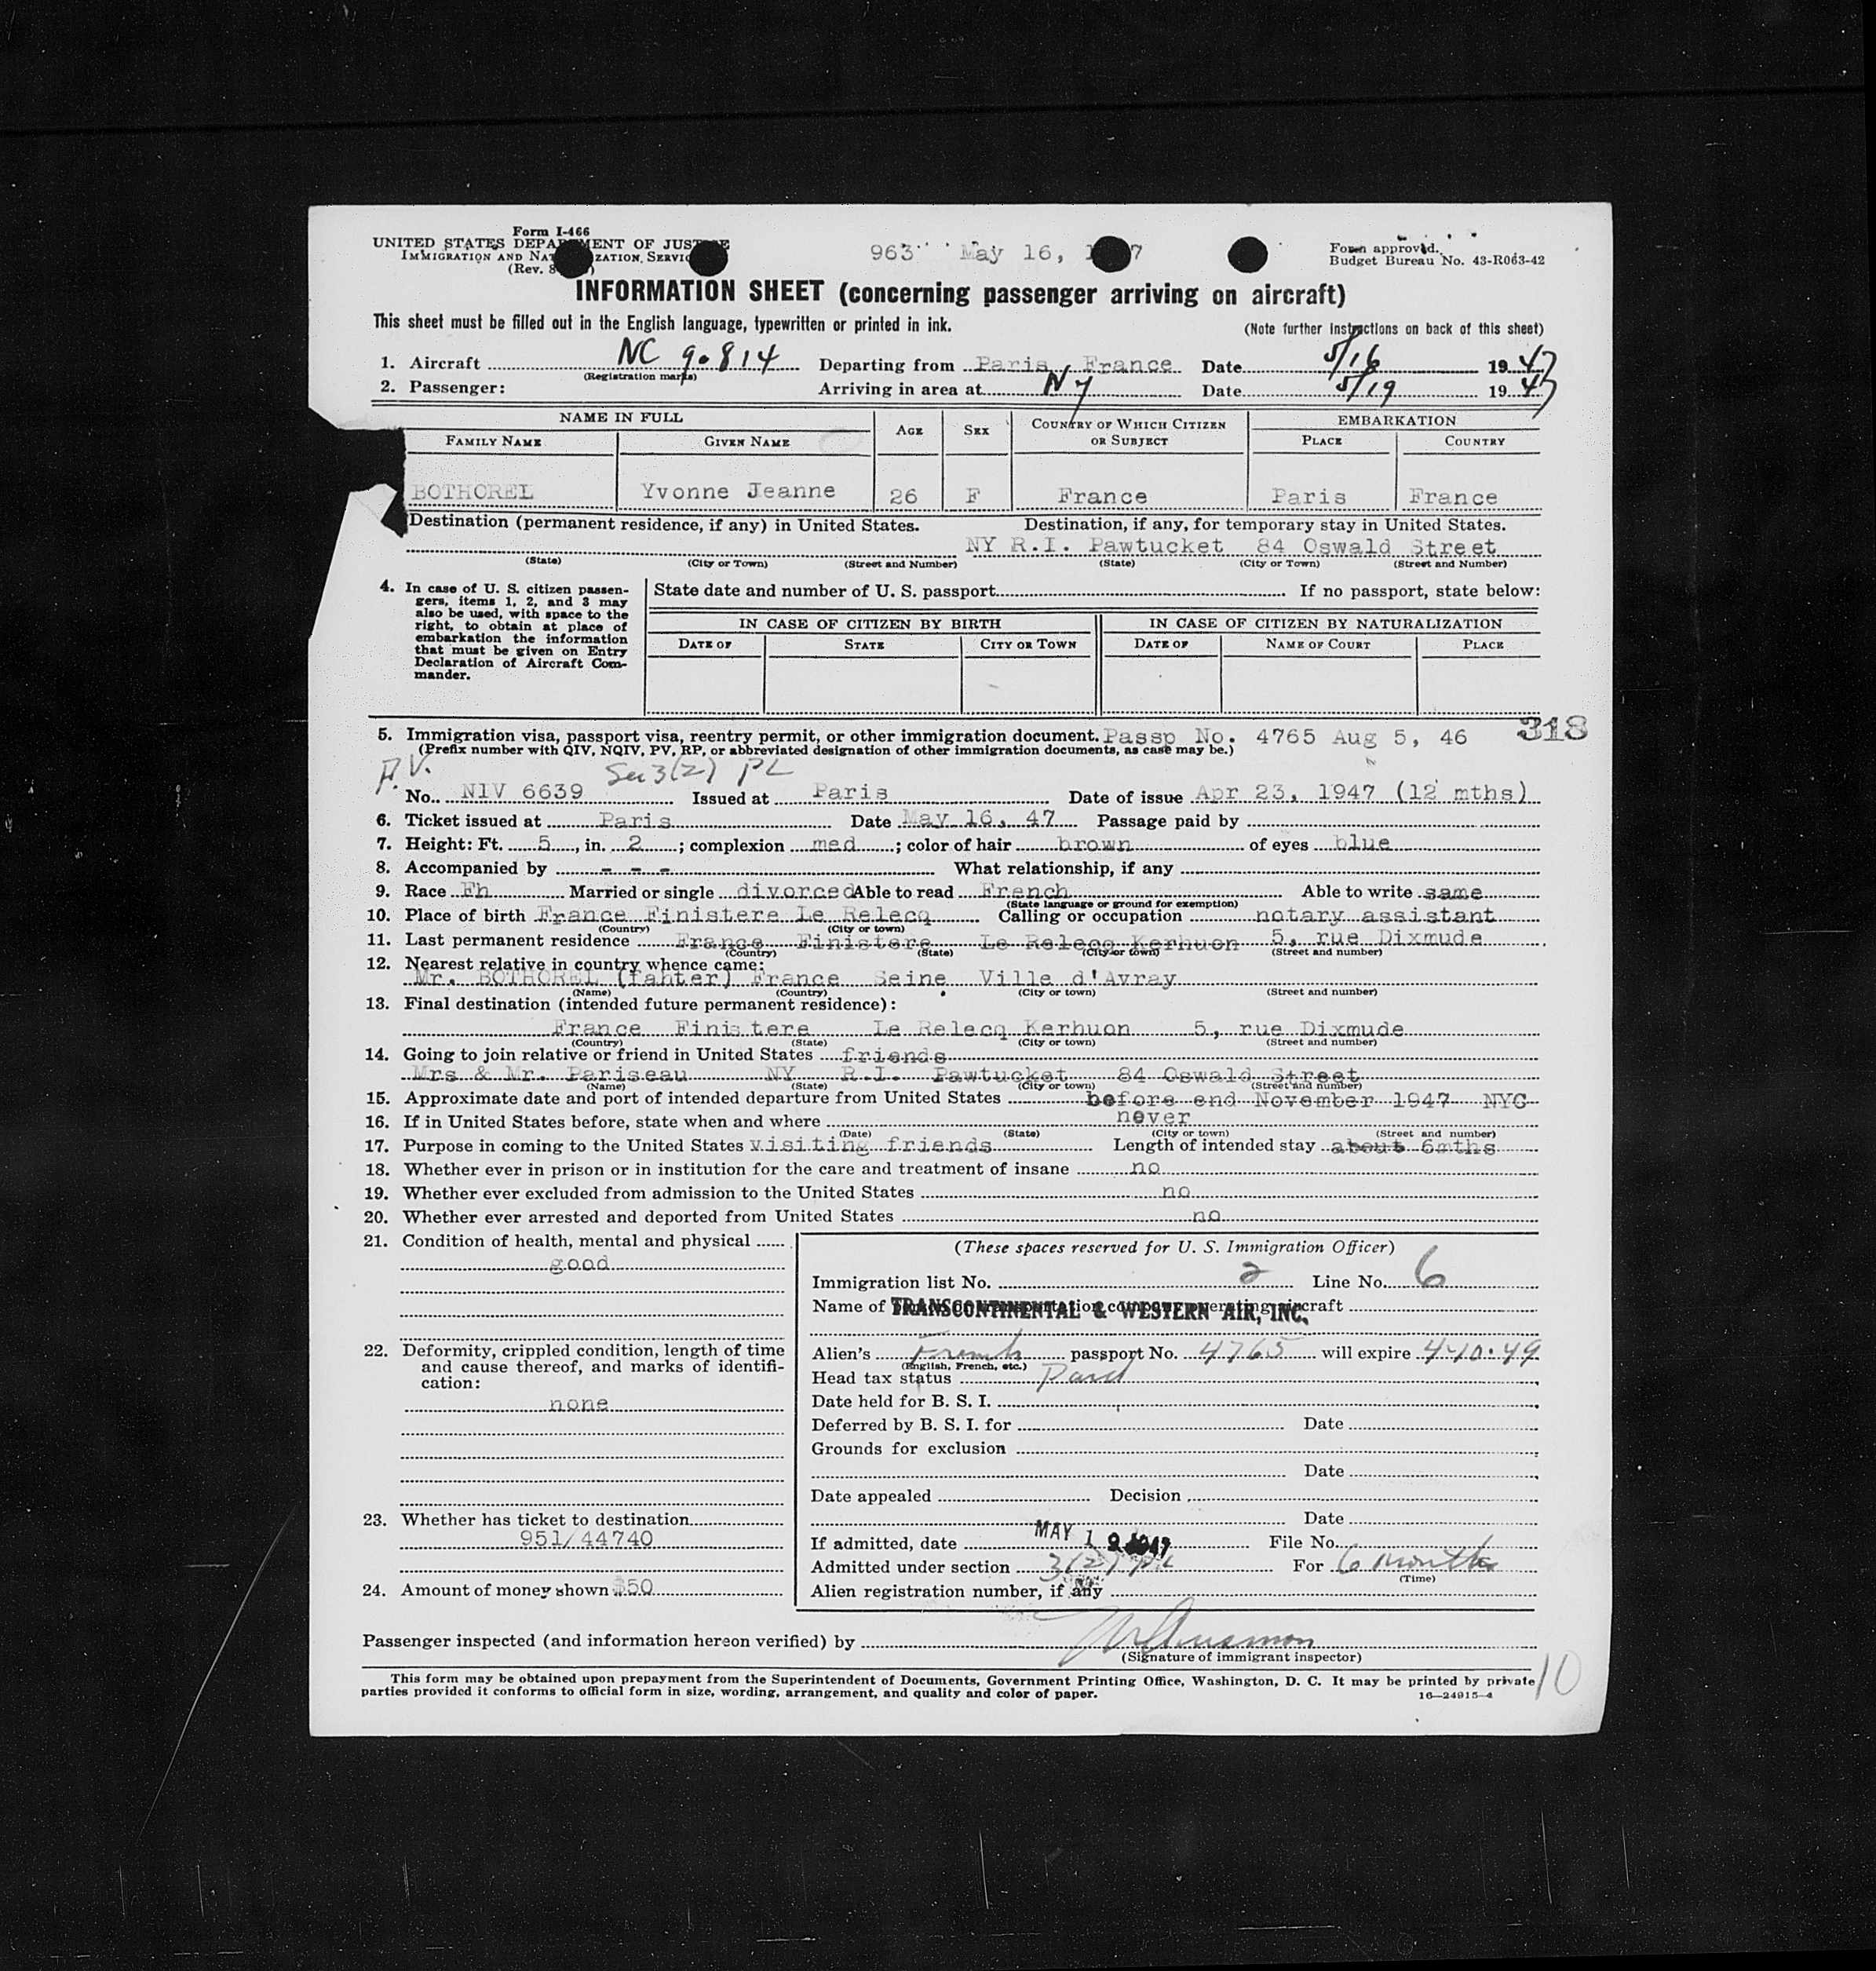 Form I-466
UNITED STATES DEPA MENT OF JUS E
IMMIGRATION AND NA ZATION SERVI
(Rev. 8 )
963 May 16, 1 7
Form approved.
Budget Bureau No. 43-R063-42
INFORMATION SHEET (concerning passenger arriving on aircraft)
This sheet must be filled out in the English language, typewritten or printed in ink. (Note further instructions on back of this sheet)
1. Aircraft NC 90814 Departing from Paris, France Date 5/16 1947
(Registration marks)
2. Passenger: Arriving in area at NY Date 5/19 1947
NAME IN FULL AGE SEX COUNTRY OF WHICH CITIZEN OR SUBJECT EMBARKATION
FAMILY NAME GIVEN NAME PLACE COUNTRY
BOTHOREL Yvonne Jeanne 26 F France Paris France
Destination (permanent residence, if any) in United States. Destination, if any, for temporary stay in United States.
NY R.I. Pawtucket 84 Oswald Street
(State) (City or Town) (Street and Number) (State) (City or Town) (Street and Number)
4. In case of U. S. citizen passengers, items 1, 2, and 3 may also be used, with space to the right, to obtain at place of embarkation the information that must be given on Entry Declaration of Aircraft Commander.
State date and number of U. S. passport If no passport, state below:
IN CASE OF CITIZEN BY BIRTH IN CASE OF CITIZEN BY NATURALIZATION
DATE OF STATE CITY OR TOWN DATE OF NAME OF COURT PLACE
318
5. Immigration visa, passport visa, reentry permit, or other immigration document. Passp No. 4765 Aug 5, 46
(Prefix number with QIV, NQIV, PV, RP, or abbreviated designation of other immigration documents, as case may be.)
P.V. Sec 3(2) PL
No. NIV 6639 Issued at Paris Date of issue Apr 23, 1947 (12 mths)
6. Ticket issued at Paris Date May 16, 47 Passage paid by
7. Height: Ft. 5, in. 2; complexion med; color of hair brown of eyes blue
8. Accompanied by - - - What relationship, if any
9. Race Fh Married or single divorced Able to read French Able to write same
(State language or ground for exemption)
10. Place of birth France Finistere Le Relecq Calling or occupation notary assistant
(Country) (City or town)
11. Last permanent residence France Finistere Le Relecq Kerhuon 5, rue Dixmude
(Country) (State) (City or town) (Street and number)
12. Nearest relative in country whence came:
Mr. BOTHOREL (fahter) France Seine Ville d'Avray
(Name) (Country) (City or town) (Street and number)
13. Final destination (intended future permanent residence):
France Finistere Le Relecq Kerhuon 5, rue Dixmude
(Country) (State) (City or town) (Street and number)
14. Going to join relative or friend in United States friends
Mrs & Mr. Pariseau NY R.I. Pawtucket 84 Oswald Street
(Name) (State) (City or town) (Street and number)
15. Approximate date and port of intended departure from United States before end November 1947 NYC
16. If in United States before, state when and where never
(Date) (State) (City or town) (Street and number)
17. Purpose in coming to the United States visiting friends Length of intended stay about 6mths
18. Whether ever in prison or in institution for the care and treatment of insane no
19. Whether ever excluded from admission to the United States no
20. Whether ever arrested and deported from United States no
21. Condition of health, mental and physical
good
22. Deformity, crippled condition, length of time and cause thereof, and marks of identification:
none
23. Whether has ticket to destination
951/44740
24. Amount of money shown $50
(These spaces reserved for U. S. Immigration Officer)
Immigration list No. 2 Line No. 6
Name of transportation company operating aircraft
TRANSCONTINENTAL & WESTERN AIR, INC.
Alien's French passport No. 4765 will expire 4-10-49
(English, French, etc.)
Head tax status Paid
Date held for B. S. I.
Deferred by B. S. I. for Date
Grounds for exclusion
Date
Date appealed Decision
Date
If admitted, date MAY 19 1947 File No.
Admitted under section 3(2) PL For 6 months
(Time)
Alien registration number, if any
Passenger inspected (and information hereon verified) by
(Signature of immigrant inspector)
This form may be obtained upon prepayment from the Superintendent of Documents, Government Printing Office, Washington, D. C. It may be printed by private
parties provided it conforms to official form in size, wording, arrangement, and quality and color of paper. 16—24915-4
10